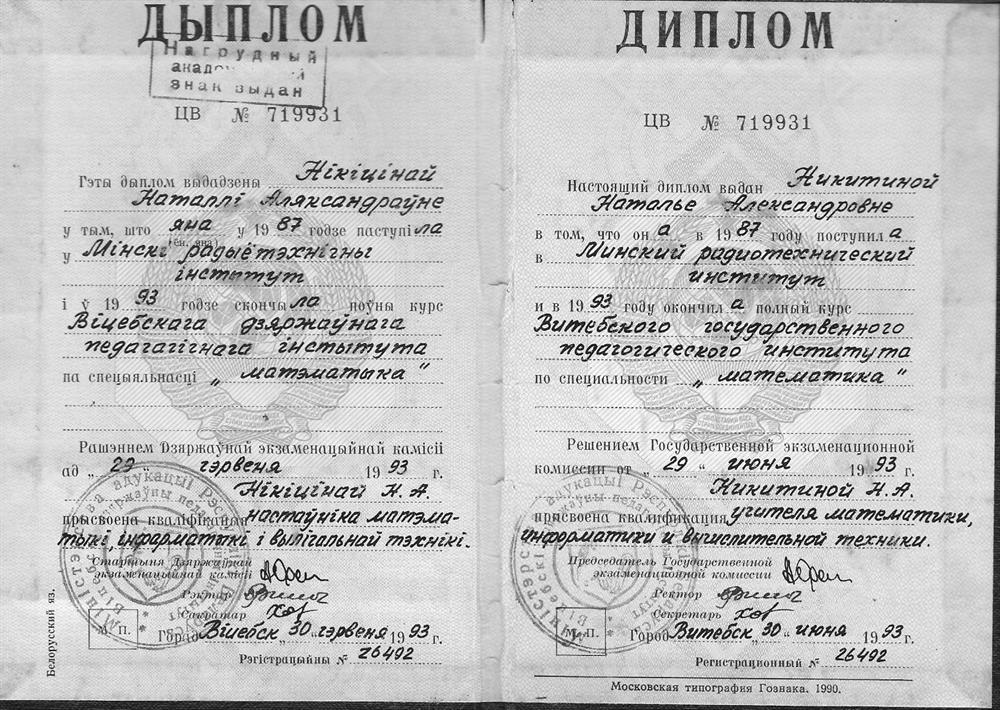 ДЫПЛОМ
Нагрудный
знак выдан
ЦВ № 719931
Гэты дыплом выдадзены Нікіцінай
Наталлі Аляксандраўне
у тым, што яна у 1987 годзе паступіла
(ён, яна)
у Мінскі радыётэхнічны
інстытут
і ў 1993 годзе скончыла поўны курс
Віцебскага дзяржаўнага
педагагічнага інстытута
па спецыяльнасці „ матэматыка "
Рашэннем Дзяржаўнай экзаменацыйнай камісіі
ад „ 29 " чэрвеня 1993 г.
Нікіцінай Н. А.
прысвоена кваліфікацыя настаўніка матэма-
тыкі, інфарматыкі і вылічальнай тэхнікі.
Старшыня Дзяржаўнай
экзаменацыйнай камісіі
Рэктар
Сакратар
М. П.
Горад Віцебск „ 30 " чэрвеня 1993 г.
Рэгістрацыйны № 26492
Белорусский яз.
ДИПЛОМ
ЦВ № 719931
Настоящий диплом выдан Никитиной
Наталье Александровне
в том, что она в 1987 году поступила
в Минский радиотехнический
институт
и в 1993 году окончила полный курс
Витебского государственного
педагогического института
по специальности „ математика "
Решением Государственной экзаменационной
комиссии от „ 29 " июня 1993 г.
Никитиной Н. А.
присвоена квалификация учителя математики,
информатики и вычислительной техники.
Председатель Государственной
экзаменационной комиссии
Ректор
Секретарь
М. П.
Город Витебск „ 30 " июня 1993 г.
Регистрационный № 26492
Московская типография Гознака. 1990.